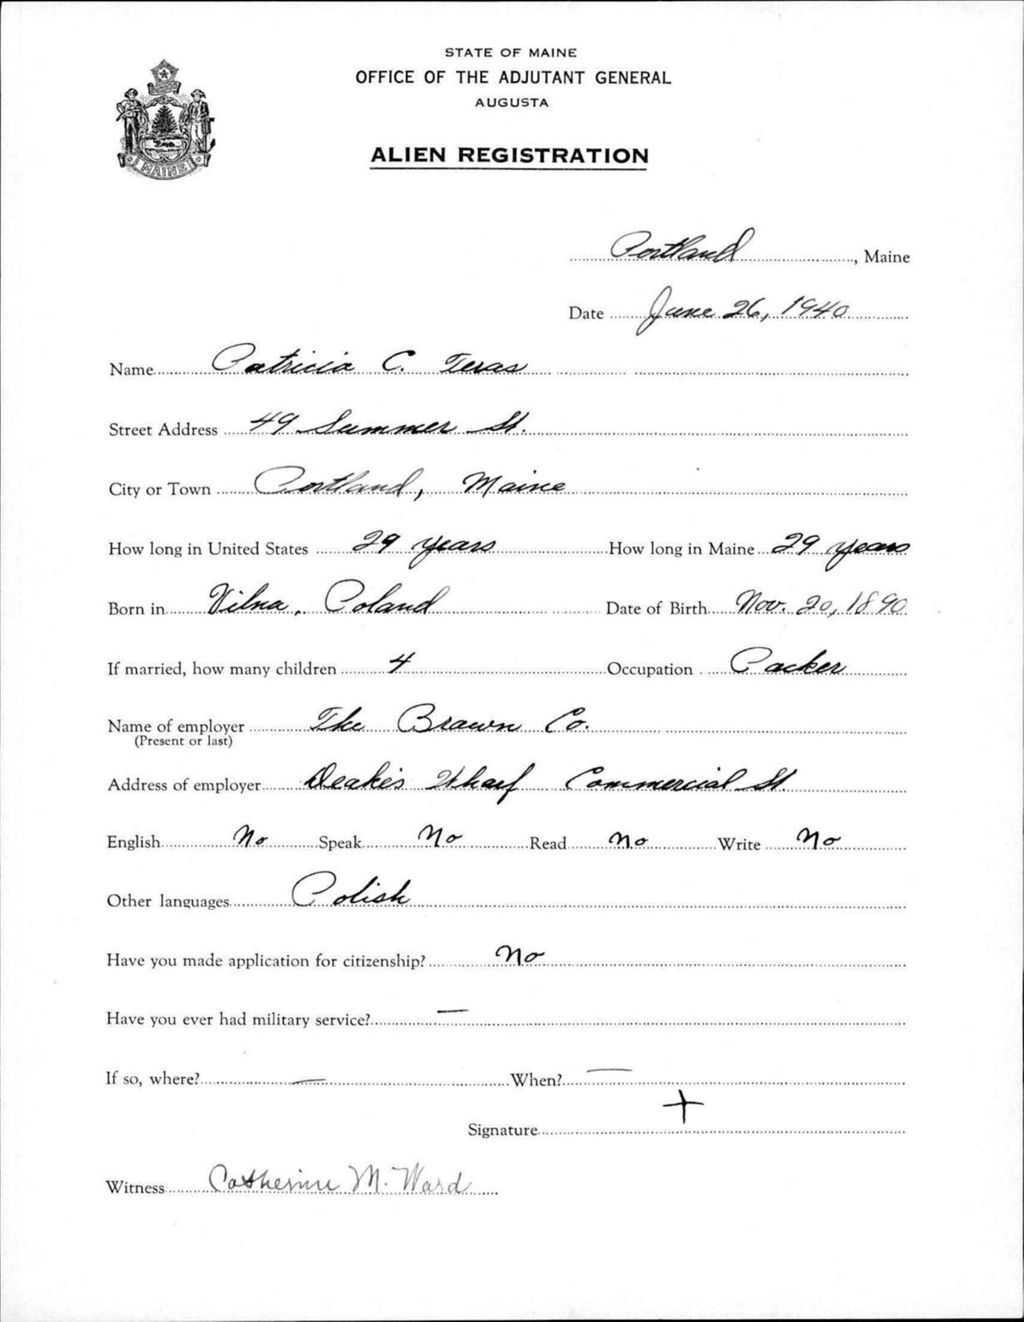 STATE OF MAINE
OFFICE OF THE ADJUTANT GENERAL
AUGUSTA
ALIEN REGISTRATION
MAINE
Portland, Maine
Date June 26, 1940
Name Patricia C. Teras
Street Address 49 Summer St.
City or Town Portland, Maine
How long in United States 29 years How long in Maine 29 years
Born in Vilna, Poland Date of Birth Nov. 20, 1890
If married, how many children 4 Occupation Packer
Name of employer The Brawn Co.
(Present or last)
Address of employer Deake's Wharf Commercial St.
English No Speak No Read No Write No
Other languages Polish
Have you made application for citizenship? No
Have you ever had military service? —
If so, where? — When? —
Signature +
Witness Catherine M. Ward